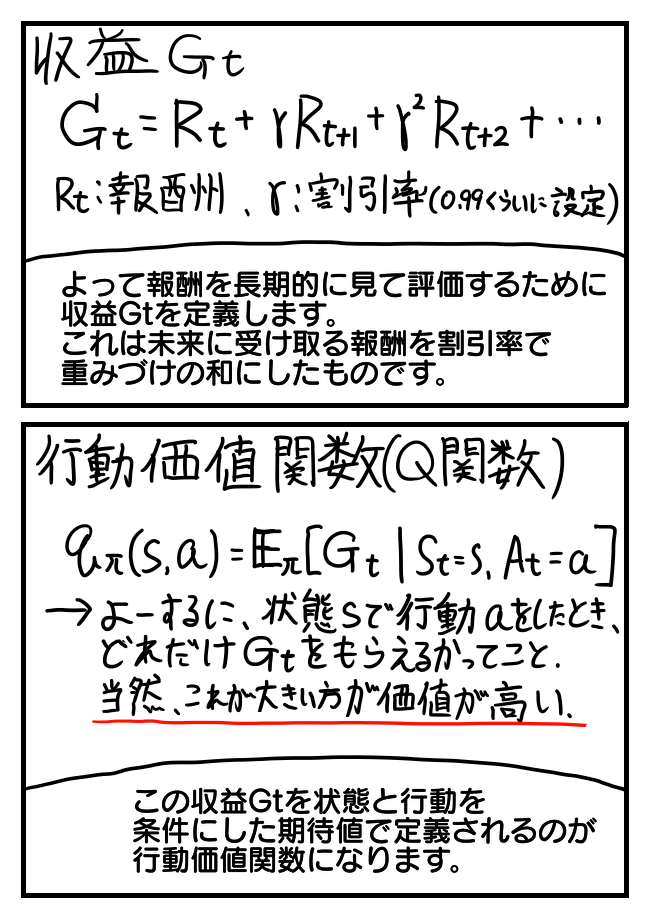 収益 Gt
Gt = Rt + γRt+1 + γ²Rt+2 + ···
Rt:報酬、γ:割引率(0.99くらいに設定)
よって報酬を長期的に見て評価するために
収益Gtを定義します。
これは未来に受け取る報酬を割引率で
重みづけの和にしたものです。
行動価値関数(Q関数)
qπ(s,a) = 𝔼π[Gt | St=s, At=a]
→よーするに、状態sで行動aをしたとき、
どれだけGtをもらえるかってこと.
当然、これが大きい方が価値が高い.
この収益Gtを状態と行動を
条件にした期待値で定義されるのが
行動価値関数になります。